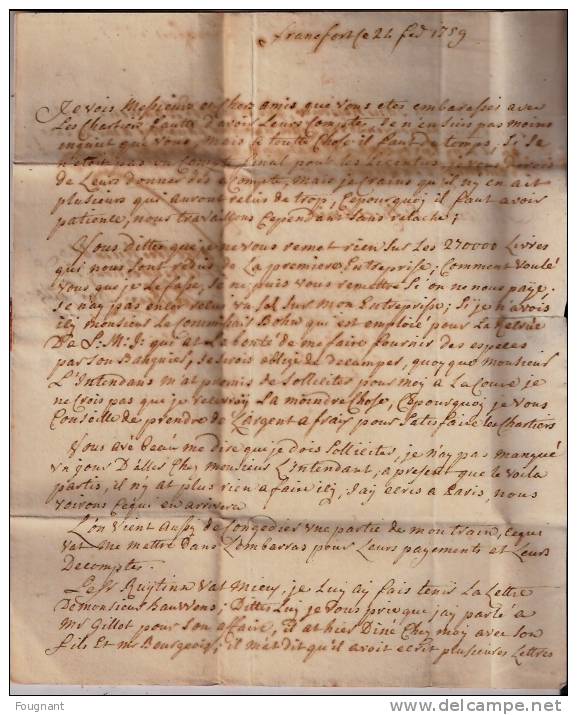 francfort ce 24 feb 1759
Je vois Messieurs et Chers amis que vous etes embarasses avec
Les Chartiers faute d'avoir Leurs Comptes, Je n'en suis pas moins
inquiet que vous, mais a toutte Chose il faut du temps, Si Je
n'etoit pas
de Leurs donner des a Compte, mais je crains qu'il n'y en ait
plusieurs qui auront retus de trop, C'epourquoy il faut avoir
patience, nous travaillons Cependant sans relache;
Vous dittes que je ne vous remet rien sur Les 270000 Livres
qui nous sont redus de La premiere Entreprise, Comment voulé
vous que je Le fasse, Je ne puis vous remettre si on ne nous paye.
Je n'ay pas encor retus un sol sur mon Entreprise; Si Je n'avois
icy monsieur Le Commissair Bohn qui est emploié pour La
De S. M. I. qui at La bonté de me faire fournir des especes
par son Banquier, Je serois obligé de decamper, quoy que monsieur
L'Intendans m'at promis de solliciter pour moy a La Cour je
ne Crois pas que je recevray La moindre Chose, C'epourquoy je vous
Conseille de prendre de L'argent a frais pour satisfaire les Chartiers
Vous avé beau me dire que je dois sollicites, je n'ay pas manqué
un jour D'alles Chez monsieur L'Intendant, a present que le voila
partis, il n'y at plus rien a faire icy, J'ay ecris a Paris, nous
voirons ce qui en arrivera
L'on vient aussy de Congedier une partie de mon train, Ce qui
vat me mettre dans L'ombarras pour Leurs payements et Leurs
Decompte.
Le Sr Ruytinx vat mieux, je Luy ay fais tenir La Lettre
De monsieur hauwens, Dittes Luy je vous prie que j'ay parlé a
Mr Gillot pour son affaire, il at hier Diné Chez moy avec son
fils Et Mr Bourgeois; il m'at dit qu'il avoit ecrit plusieures Lettres
Fougnant
delcampe.net